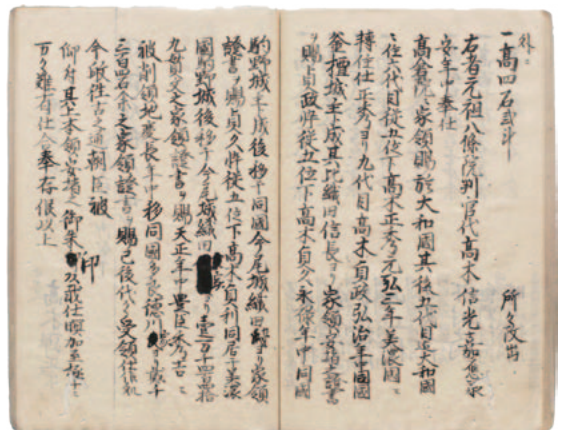 外ニ
一高四石弐斗 所々改出
右者元祖八條院判官代高木信光嘉応承
安年中奉仕
高倉院家領賜於大和國其後九代目迄大和國
ニ住六代目従五位下高木正秀元弘三年美濃國ニ
轉住仕正秀ヨリ九代目高木貞政弘治年中同國
釜檀城主ト成其比織田信長ヨリ家領安堵之證書
ヲ賜貞政悴従五位下高木貞久永禄年中同國
駒野城主ト成後移于同國今尾城織田ヨリ家領
證書ヲ賜貞久悴従五位下高木貞利同居于美濃
國駒野城後移于今尾城織田ヨリ壹万四百拾
九貫文之家領證書ヲ賜天正年中豊臣秀吉ニ
被削領地慶長年中移同國多良徳川ヨリ弐千
三百四石余之家領證書ヲ賜已後代々受領仕
今般往古之通朝臣被
仰付其上本領安堵之御朱印
万々難有仕合奉存候以上